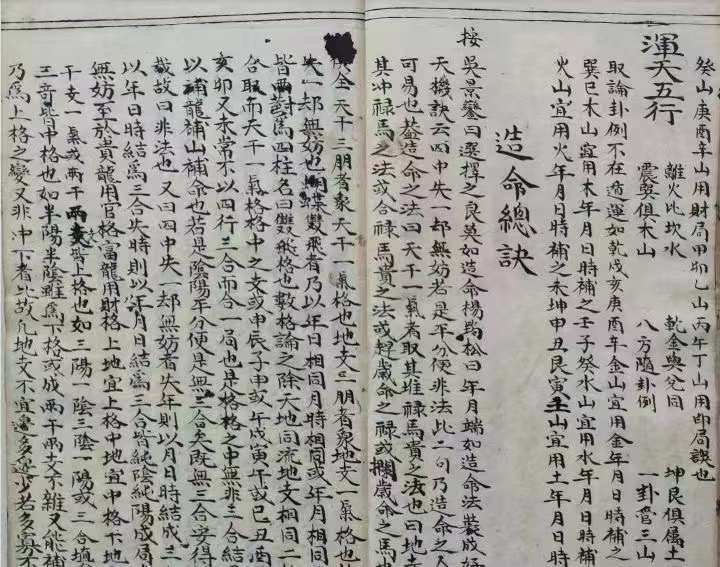 癸山庚酉年山用財局甲卯乙山丙午丁山用印局誤也
渾天五行
離火比坎水 乾金與兌同 坤艮俱属土
震巽俱木山 八方隨卦例 一卦管三山
取論卦例不在通運如乾戌亥庚酉年金山宜用金年月日時補之
巽巳木山宜用木年月日時補之壬子癸水山宜用水年月日時補
火山宜用火年月日時補之未坤申丑艮寅土山宜用土年月日時
造命總訣
按吳景鸞曰選擇之良莫如造命楊筠松曰年月端如造命法裝成
天機訣云四中失一却無妨若是平分便非法此二句乃造命之人
可易也盖造命之法曰天干一氣者取其堆禄馬貴之法也曰地支
其冲禄馬之法或合禄馬貴之法或歲命之禄或歲命之馬也
全天干三朋者象天干一氣格也地支三朋者象地支一氣格也
失一却無妨也蝴蝶雙飛者乃以年日相同月時相同或年月相同
皆兩對爲四柱名曰雙飛格也數格論之除天地同流地支相同二
合取而天干一氣格格中之支或申辰子申或午戌寅午或巳丑酉
亥卯又未常不以四行三合而合一局也是格格之中無非三合結
以補龍補山補命也若是陰陽平分便是無三合矣既無三合安得
哉故曰非法也又曰四中失一却無妨者失年則以月日時結成三
以年日時結爲三合失時則以年月日結爲三合皆純陰純陽成局
無妨至於貴龍用官格富龍用財格上地宜上格中地宜中格下地
干支一氣或兩干兩支皆上格也如三陽一陰三陰一陽或三合填
三音皆中格也如半陽半陰雖爲下格或成兩午兩支不雜又能補
乃爲上格之變又非冲下者比故凡地支不宜遭多迓少若多寡不